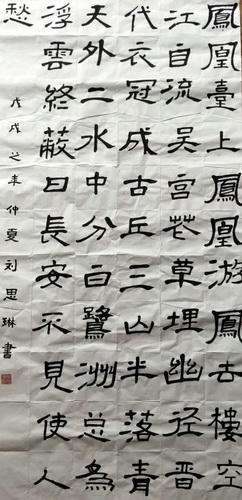 鳳凰臺上鳳凰游鳳去樓空
江自流吴宮花草埋幽径晋
代衣冠成古丘三山半落青
天外二水中分白鷺洲总為
浮雲終蔽日長安不見使人
愁
戊戌之年仲夏刘思琳書